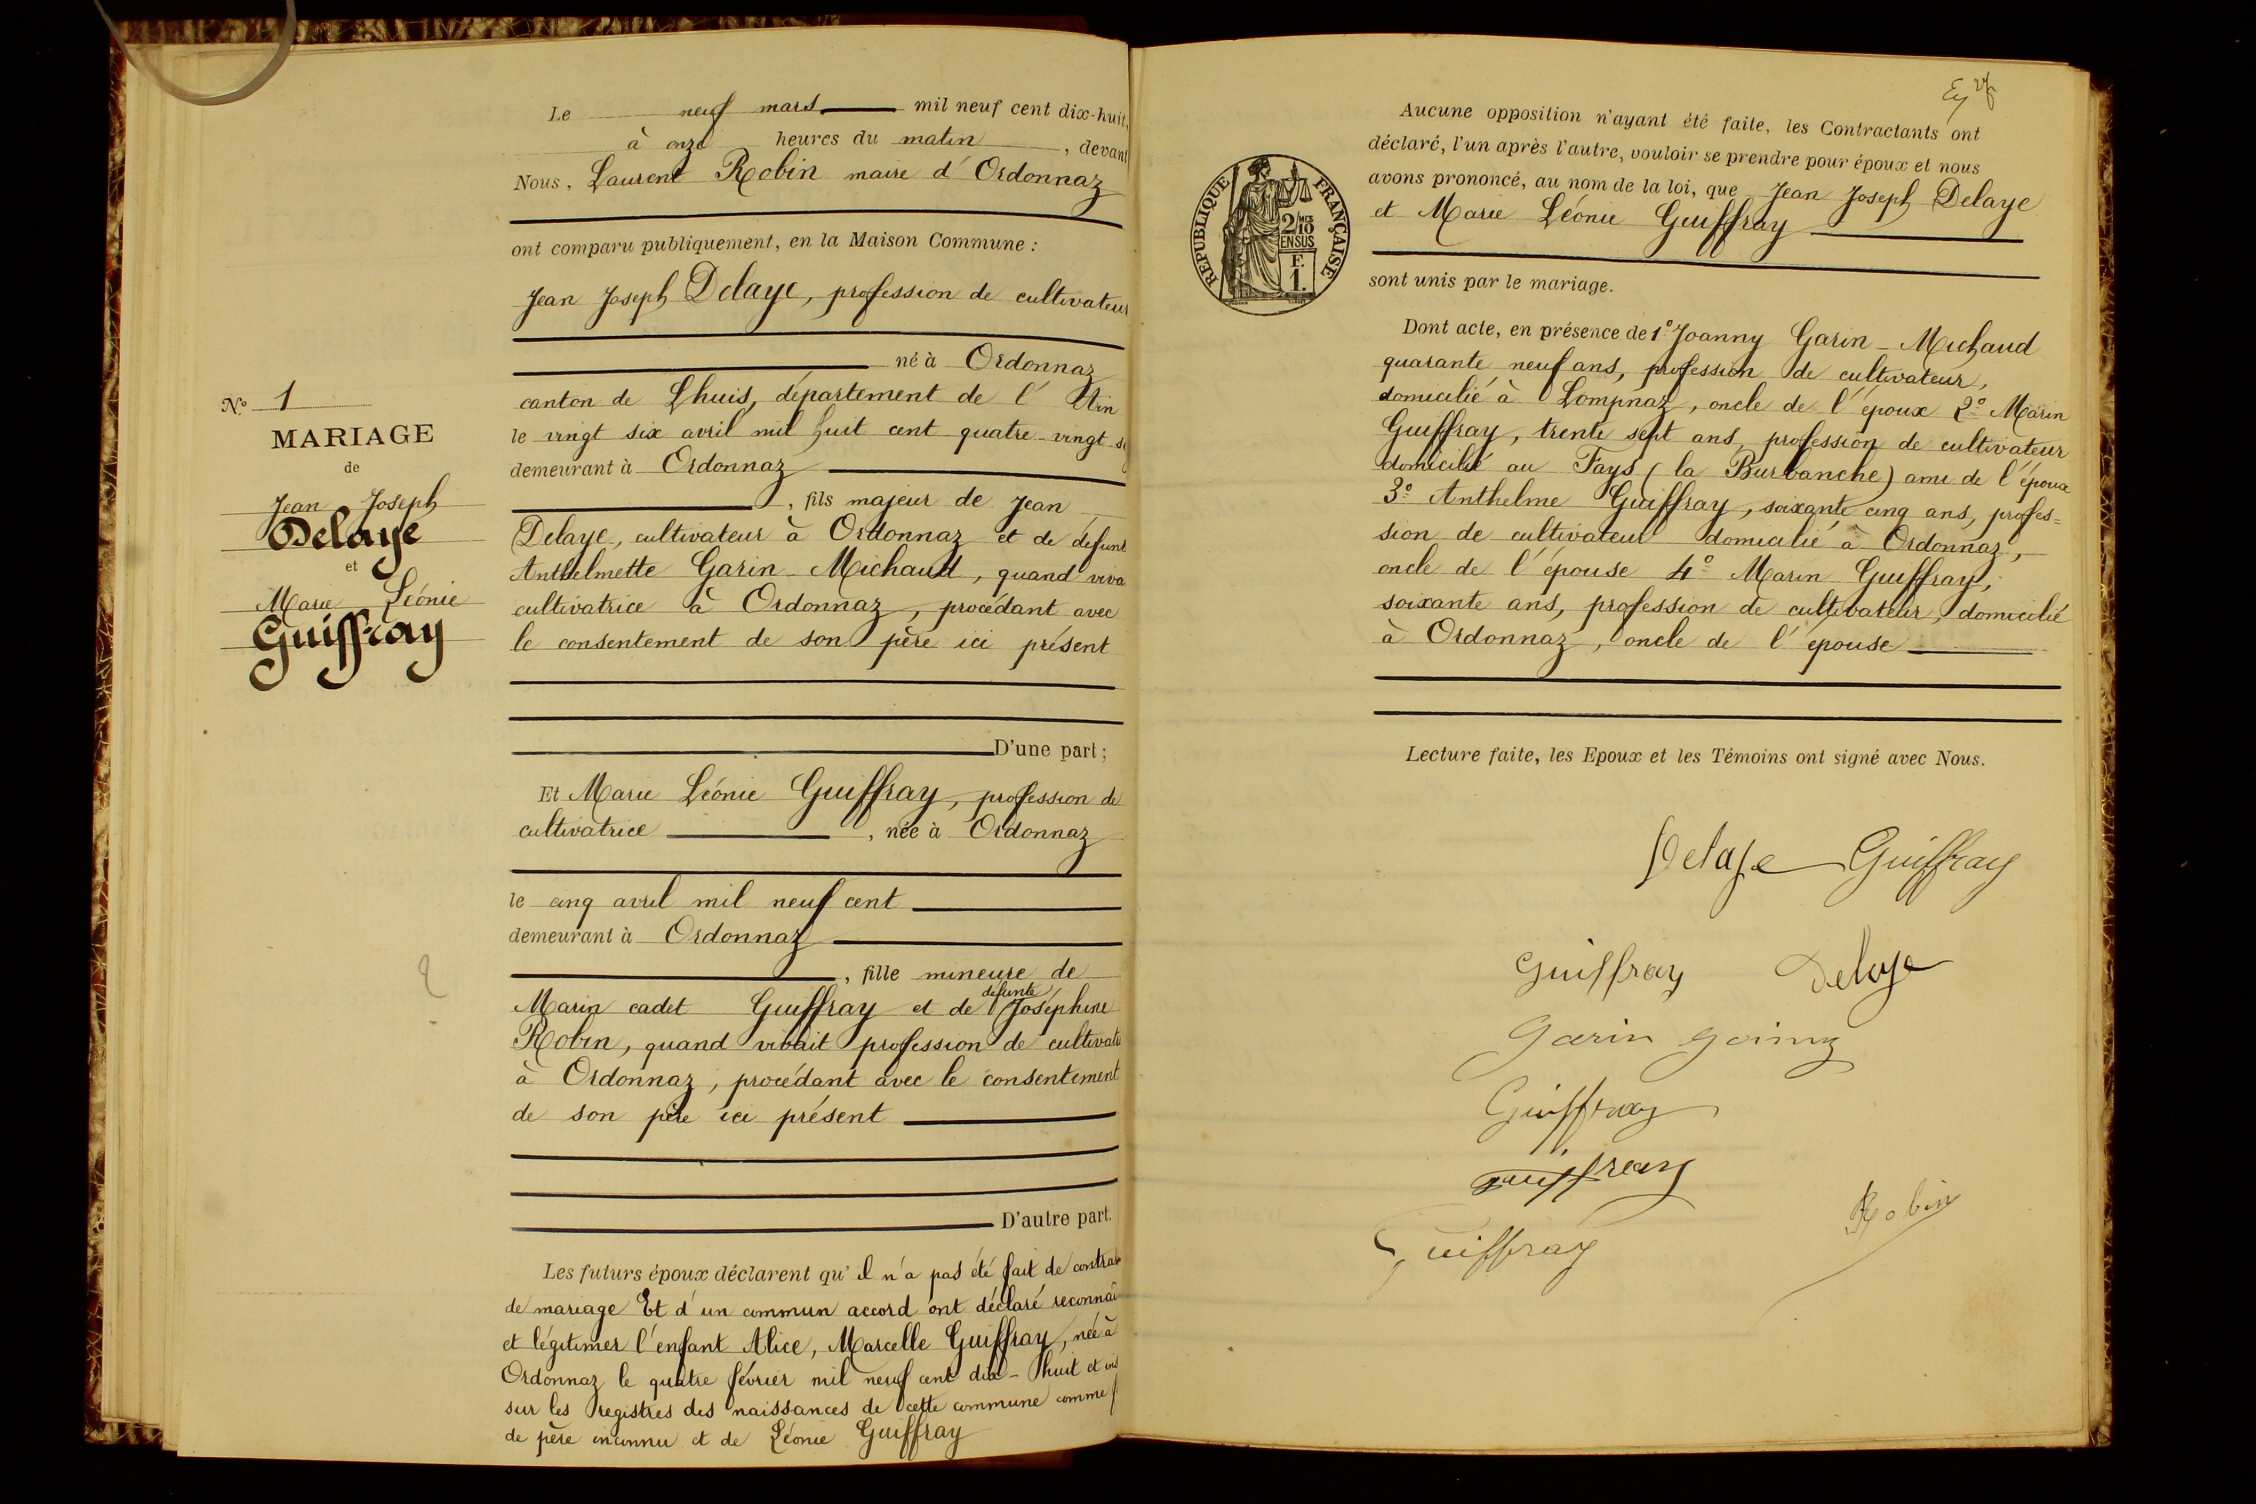 Le neuf mars mil neuf cent dix-huit,
à onze heures du matin, devant
Nous, Laurent Robin maire d'Ordonnaz
ont comparu publiquement, en la Maison Commune :
Jean Joseph Delaye, profession de cultivateur
né à Ordonnaz
canton de Lhuis, département de l'Ain
le vingt six avril mil huit cent quatre-vingt
demeurant à Ordonnaz
, fils majeur de Jean
Delaye, cultivateur à Ordonnaz et de défunt
Anthelmette Garin-Michaud, quand viva
cultivatrice à Ordonnaz, procédant avec
le consentement de son père ici présent
D'une part ;
Et Marie Léonie Guiffray, profession de
cultivatrice, née à Ordonnaz
le cinq avril mil neuf cent
demeurant à Ordonnaz
, fille mineure de
Marin cadet Guiffray et de défunte Joséphine
Robin, quand vivait profession de cultivat
à Ordonnaz, procédant avec le consentement
de son père ici présent
D'autre part.
Les futurs époux déclarent qu'il n'a pas été fait de contrat
de mariage Et d'un commun accord ont déclaré reconnaî
et légitimer l'enfant Alice, Marcelle Guiffray, née à
Ordonnaz le quatre février mil neuf cent dix-huit et
sur les registres des naissances de cette commune comme f
de père inconnu et de Léonie Guiffray
N.º 1
MARIAGE
de
Jean Joseph
Delaye
et
Marie Léonie
Guiffray
Aucune opposition n'ayant été faite, les Contractants ont
déclaré, l'un après l'autre, vouloir se prendre pour époux et nous
avons prononcé, au nom de la loi, que Jean Joseph Delaye
et Marie Léonie Guiffray
sont unis par le mariage.
RÉPUBLIQUE FRANÇAISE
2/10 MES
EN SUS
F.
1.
Dont acte, en présence de 1º Joanny Garin-Michaud
quarante neuf ans, profession de cultivateur,
domicilié à Lompnaz, oncle de l'époux 2º Marin
Guiffray, trente sept ans, profession de cultivateur
domicilié au Fays (la Burbanche) ami de l'époux
3º Anthelme Guiffray, soixante cinq ans, profes=
sion de cultivateur domicilié à Ordonnaz,
oncle de l'épouse 4º Marin Guiffray,
soixante ans, profession de cultivateur, domicilié
à Ordonnaz, oncle de l'épouse
Lecture faite, les Epoux et les Témoins ont signé avec Nous.
Delaye Guiffray
Guiffray Delaye
Garin
Guiffray
Guiffray
Guiffray
Robin